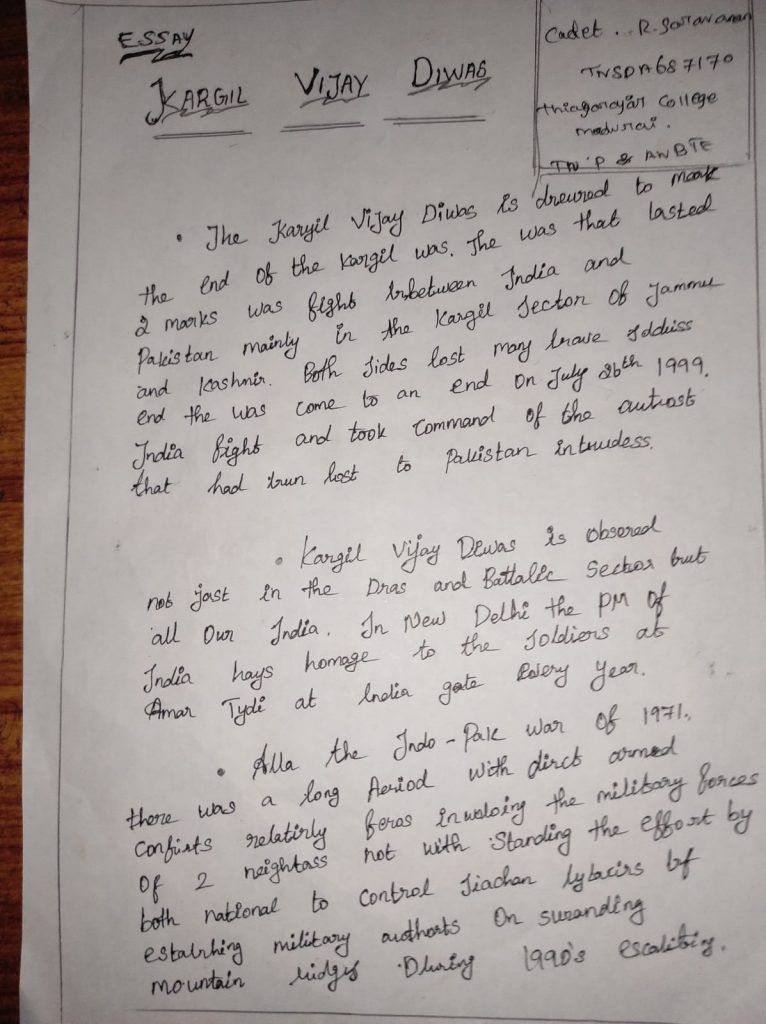 ESSAY
KARGIL VIJAY DIWAS
Cadet .. R. Saravanan
TNSDA687170
thiagarajar College
madurai.
TN P & AN BTE
• The Kargil Vijay Diwas is to mark
the end of the Kargil was. The was that lasted
2 marks was fight between India and
Pakistan mainly in the Kargil Sector of Jammu
and Kashmir. Both Sides lost many brave
end the was come to an end on July 26th 1999.
India fight and took command of the
that had lost to Pakistan
• Kargil Vijay Diwas is obsored
not jast in the Dras and Battalic Sector but
all Our India. In New Delhi the PM of
India hays homage to the Soldiers at
Amar Tydi at India gate Every year.
• Alla the Indo - Pak war of 1971,
there was a long Period with dirct armed
the military forces
of 2 not with Standing the effort by
both national to control Siachan
military on suranding
mountain During 1990's